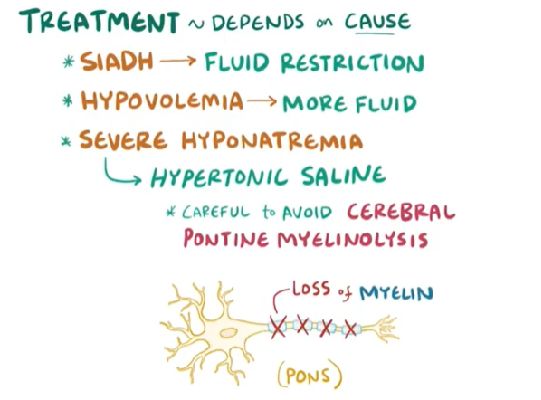 TREATMENT ~ DEPENDS on CAUSE
* SIADH → FLUID RESTRICTION
* HYPOVOLEMIA → MORE FLUID
* SEVERE HYPONATREMIA
HYPERTONIC SALINE
* CAREFUL to AVOID CEREBRAL
PONTINE MYELINOLYSIS
LOSS of MYELIN
(PONS)